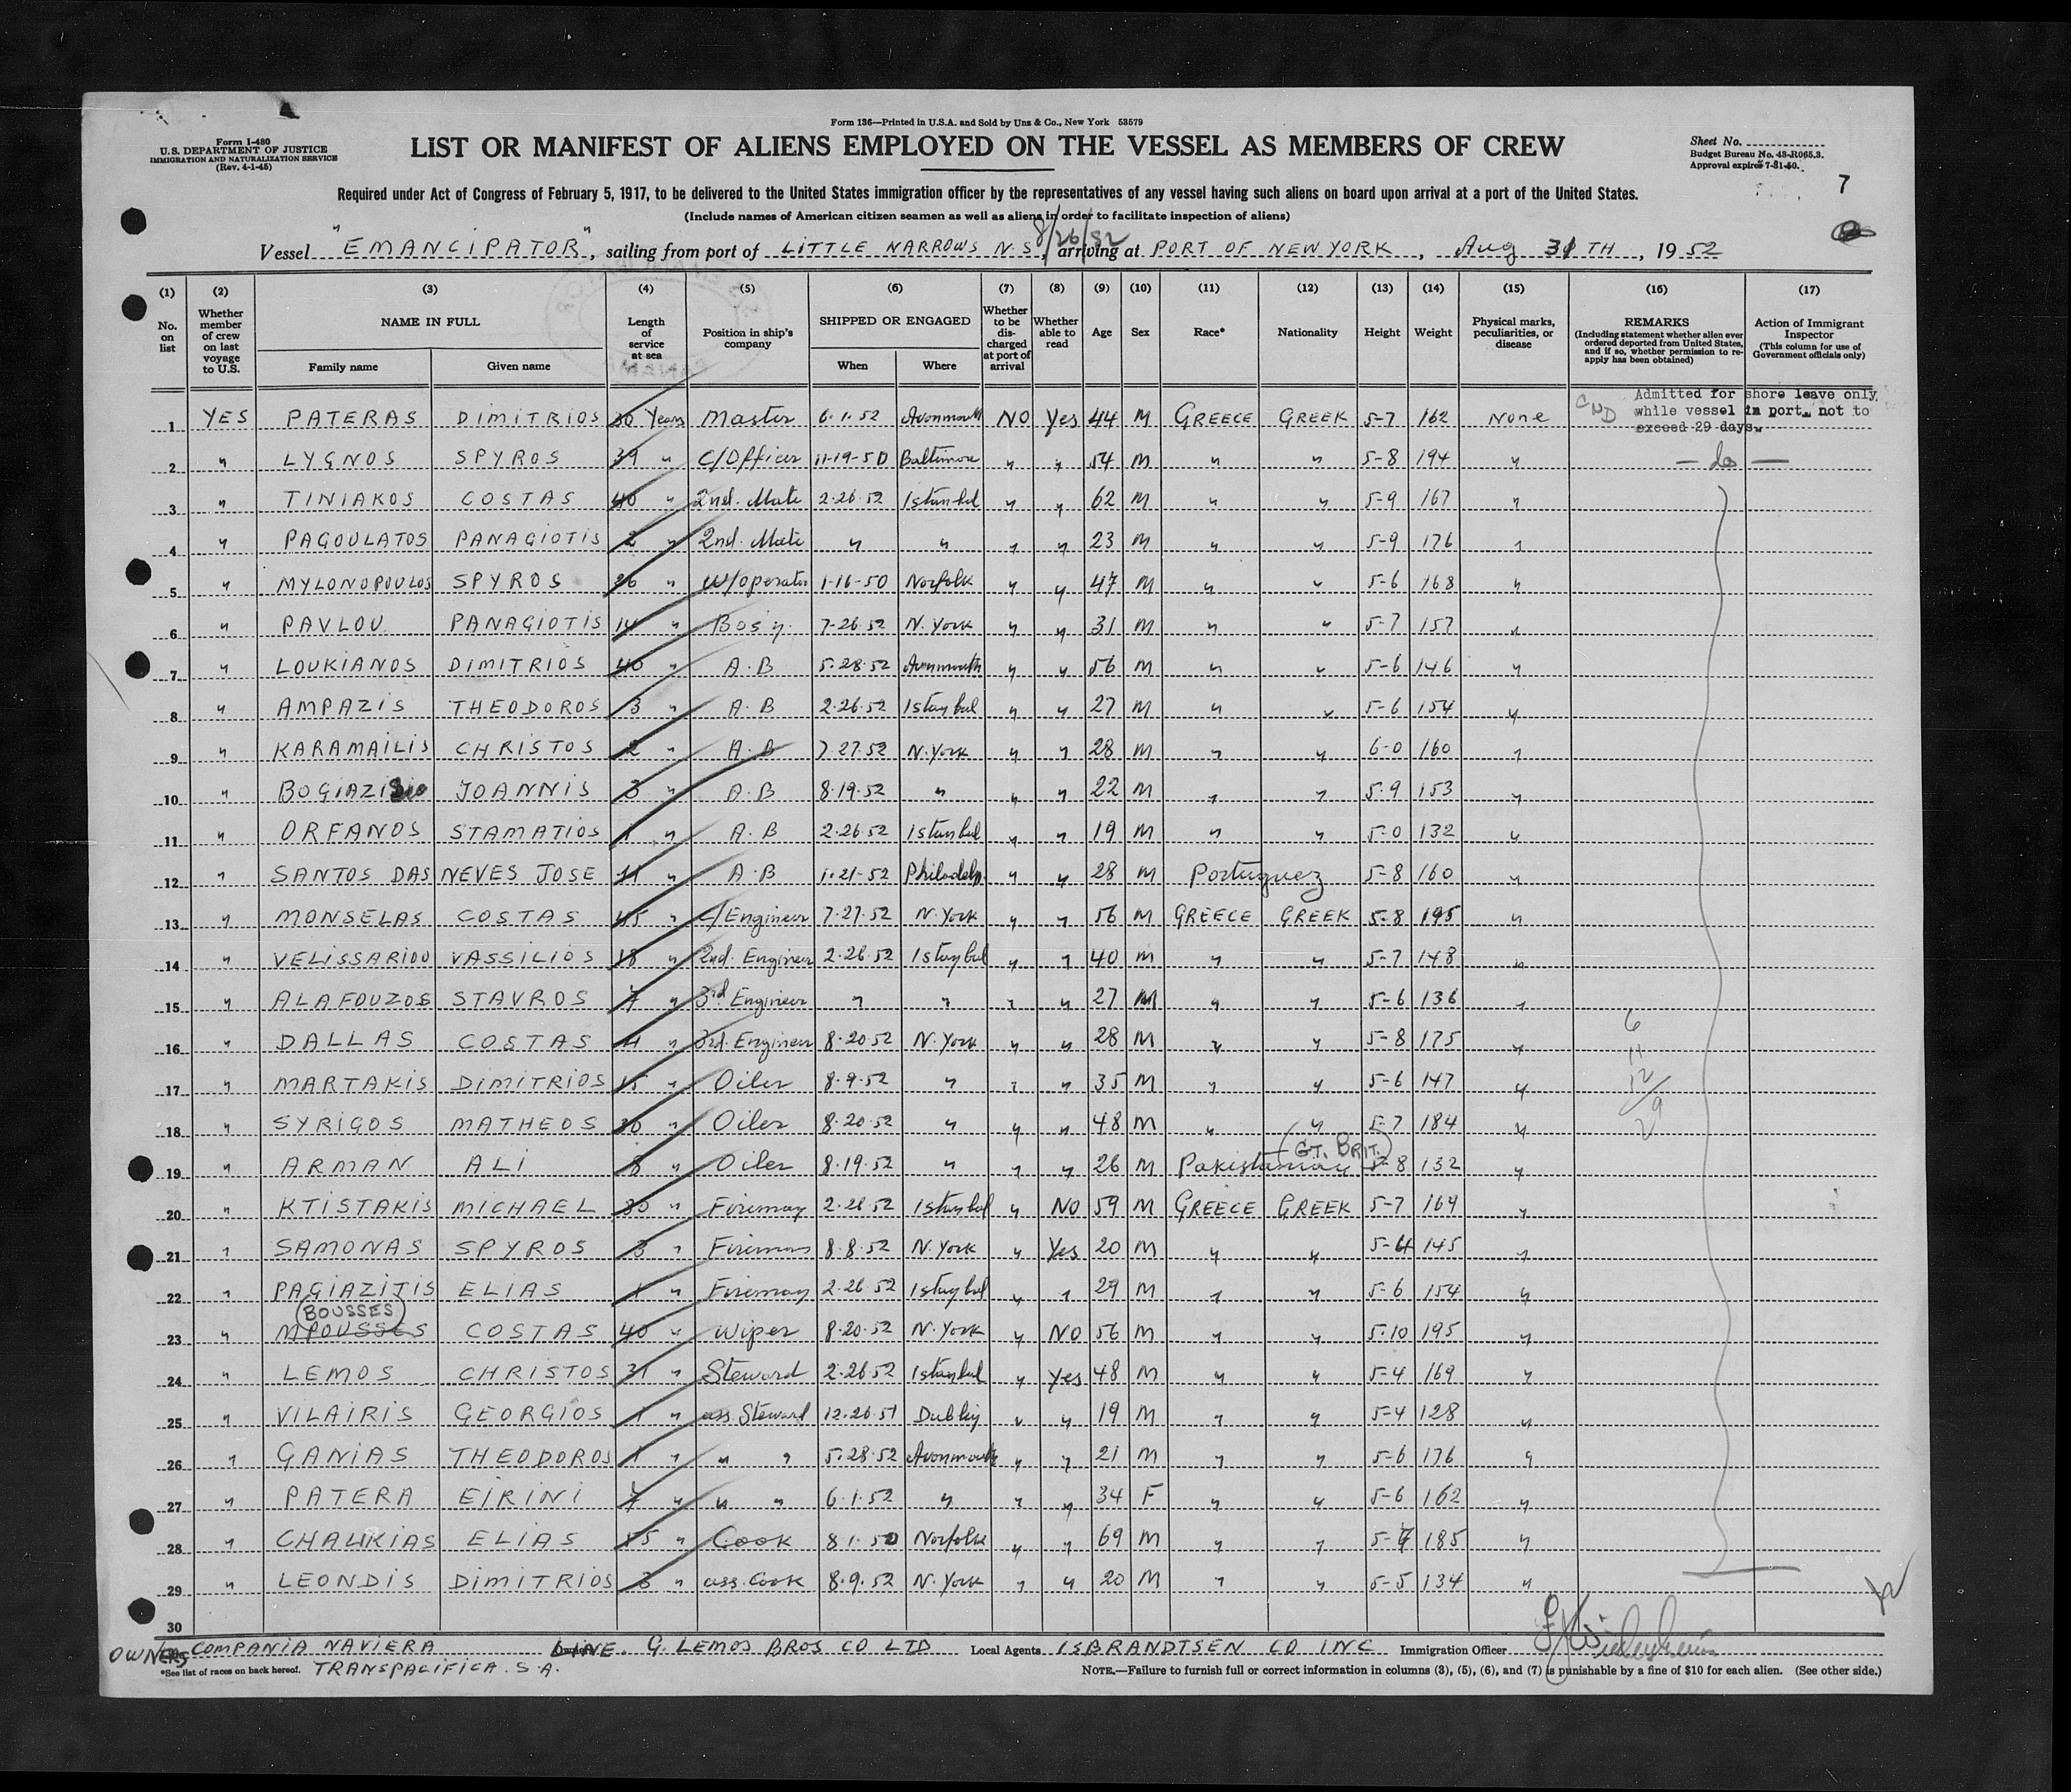 Form 136—Printed in U.S.A. and Sold by Unz & Co., New York 53579
Form I-480
U.S. DEPARTMENT OF JUSTICE
IMMIGRATION AND NATURALIZATION SERVICE
(Rev. 4-1-45)
LIST OR MANIFEST OF ALIENS EMPLOYED ON THE VESSEL AS MEMBERS OF CREW
Sheet No.
Budget Bureau No. 43-R065.3.
Approval expires 7-31-50.
7
Required under Act of Congress of February 5, 1917, to be delivered to the United States immigration officer by the representatives of any vessel having such aliens on board upon arrival at a port of the United States.
(Include names of American citizen seamen as well as aliens in order to facilitate inspection of aliens)
8/26/52
Vessel "EMANCIPATOR", sailing from port of LITTLE NARROWS N.S, arriving at PORT OF NEW YORK, Aug 31 TH, 1952
(1) (2) (3) (4) (5) (6) (7) (8) (9) (10) (11) (12) (13) (14) (15) (16) (17)
No. on list
Whether member of crew on last voyage to U.S.
NAME IN FULL
Family name
Given name
Length of service at sea
Position in ship's company
SHIPPED OR ENGAGED
When
Where
Whether to be discharged at port of arrival
Whether able to read
Age
Sex
Race*
Nationality
Height
Weight
Physical marks, peculiarities, or disease
REMARKS
(Including statement whether alien ever ordered deported from United States, and if so, whether permission to reapply has been obtained)
Action of Immigrant Inspector
(This column for use of Government officials only)
Admitted for shore leave only while vessel in port, not to exceed 29 days.
1 YES PATERAS DIMITRIOS 30 Years Master 6.1.52 Avonmouth NO Yes 44 M GREECE GREEK 5-7 162 None
2 " LYGNOS SPYROS 39 " C/Officer 11-19-50 Baltimore " " 54 M " " 5-8 194 " — do —
3 " TINIAKOS COSTAS 40 " 2nd. Mate 2-26-52 Istanbul " " 62 M " " 5-9 167 "
4 " PAGOULATOS PANAGIOTIS 2 " 2nd. Mate " " " " 23 M " " 5-9 176 "
5 " MYLONOPOULOS SPYROS 26 " W/operator 1-16-50 Norfolk " " 47 M " " 5-6 168 "
6 " PAVLOU PANAGIOTIS 14 " Bos'n 7-26-52 N. York " " 31 M " " 5-7 157 "
7 " LOUKIANOS DIMITRIOS 40 " A.B 5.28.52 Avonmouth " " 56 M " " 5-6 146 "
8 " AMPAZIS THEODOROS 3 " A.B 2.26.52 Istanbul " " 27 M " " 5-6 154 "
9 " KARAMAILIS CHRISTOS 2 " A.B 7.27.52 N. York " " 28 M " " 6-0 160 "
10 " BOGIAZI JOANNIS 3 " A.B 8.19.52 " " " 22 M " " 5-9 153 "
11 " ORFANOS STAMATIOS 1 " A.B 2.26.52 Istanbul " " 19 M " " 5-0 132 "
12 " SANTOS DAS NEVES JOSE 11 " A.B 1.21-52 Philadelp. " " 28 M Portuguez 5-8 160 "
13 " MONSELAS COSTAS 45 " c/Engineer 7.27.52 N. York " " 56 M GREECE GREEK 5-8 195 "
14 " VELISSARIOU VASSILIOS 18 " 2nd. Engineer 2.26.52 Istanbul " " 40 M " " 5-7 148 "
15 " ALAFOUZOS STAVROS 7 " 3rd Engineer " " " " 27 M " " 5-6 136 "
16 " DALLAS COSTAS 4 " 3rd. Engineer 8.20.52 N. York " " 28 M " " 5-8 175 "
17 " MARTAKIS DIMITRIOS 15 " Oiler 8.9.52 " " " 35 M " " 5-6 147 "
18 " SYRIGOS MATHEOS 30 " Oiler 8.20.52 " " " 48 M " " 5-7 184 "
(GT. BRIT.)
19 " ARMAN ALI 8 " Oiler 8.19.52 " " " 26 M Pakistanian 5-8 132 "
20 " KTISTAKIS MICHAEL 30 " Fireman 2.26.52 Istanbul " NO 59 M GREECE GREEK 5-7 169 "
21 " SAMONAS SPYROS 3 " Fireman 8.8.52 N. York " Yes 20 M " " 5-4 145 "
22 " PAGIAZITIS ELIAS 1 " Fireman 2.26.52 Istanbul " " 29 M " " 5-6 154 "
(BOUSSES)
23 " MPOUSSES COSTAS 40 " Wiper 8.20.52 N. York " NO 56 M " " 5-10 195 "
24 " LEMOS CHRISTOS 31 " Steward 2.26.52 Istanbul " Yes 48 M " " 5-4 169 "
25 " VILAIRIS GEORGIOS 1 " ass. Steward 12.26.51 Dublin " " 19 M " " 5-4 128 "
26 " GANIAS THEODOROS 1 " " " 5.28.52 Avonmouth " " 21 M " " 5-6 176 "
27 " PATERA EIRINI 7 " " " 6.1.52 " " " 34 F " " 5-6 162 "
28 " CHALIKIAS ELIAS 55 " Cook 8.1.50 Norfolk " " 69 M " " 5-7 185 "
29 " LEONDIS DIMITRIOS 3 " ass. Cook 8.9.52 N. York " " 20 M " " 5-5 134 "
30
6
11
12
29
OWNERS COMPANIA NAVIERA LINE. G. LEMOS BROS CO LTD Local Agents ISBRANDTSEN CO INC Immigration Officer
*See list of races on back hereof. TRANSPACIFICA. S.A.
NOTE.—Failure to furnish full or correct information in columns (3), (5), (6), and (7) is punishable by a fine of $10 for each alien. (See other side.)